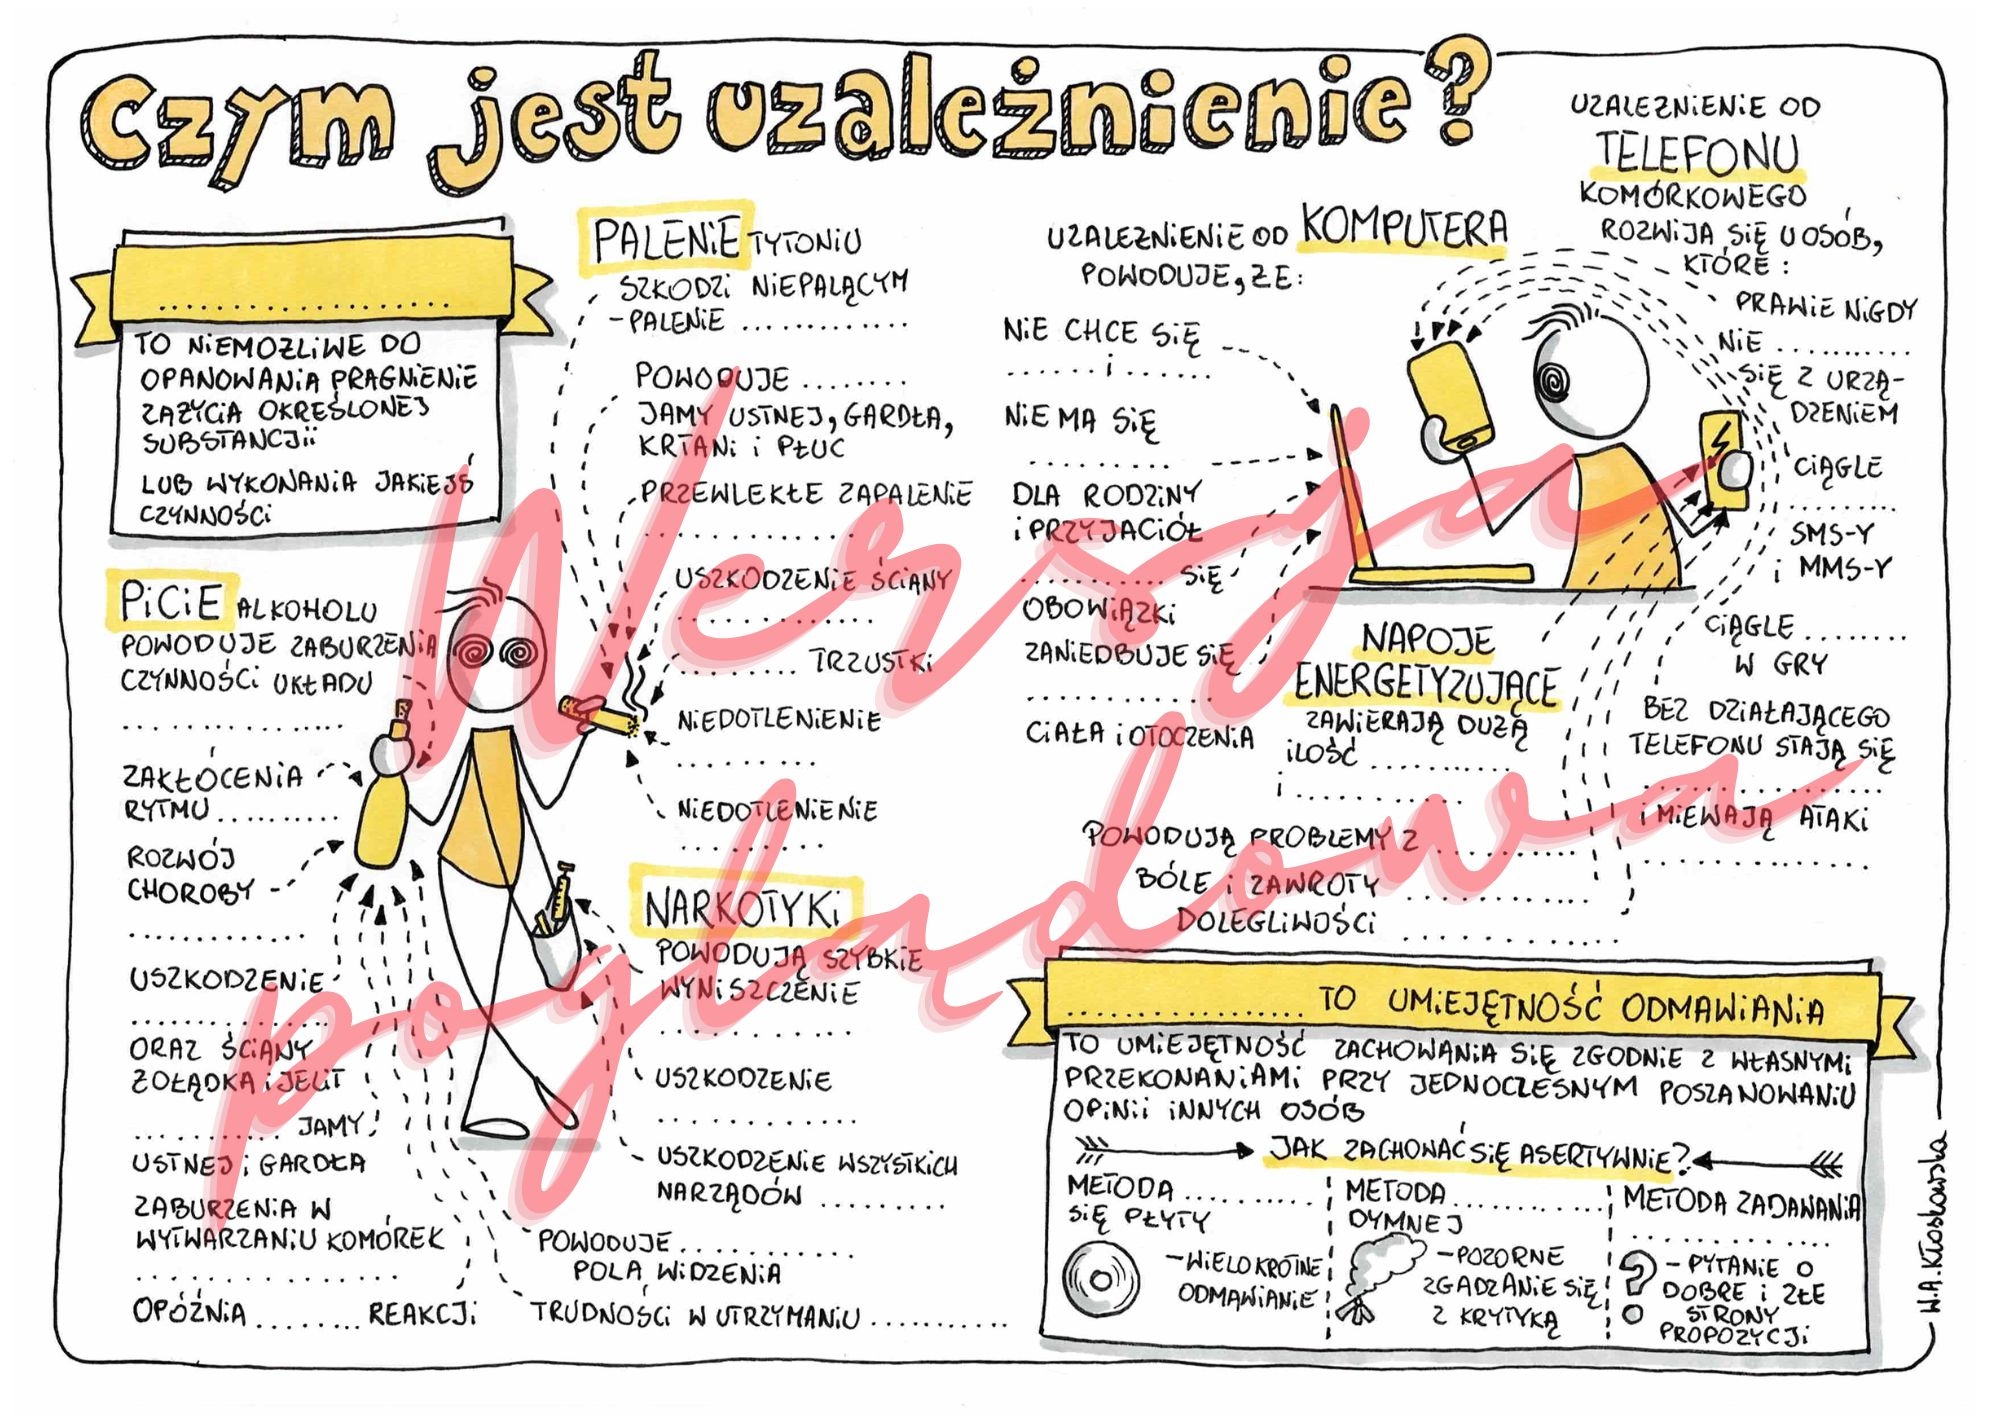 Czym jest uzależnienie?
....................
TO NIEMOŻLIWE DO
OPANOWANIA PRAGNIENIE
ZAŻYCIA OKREŚLONEJ
SUBSTANCJI
LUB WYKONANIA JAKIEJŚ
CZYNNOŚCI
PICIE ALKOHOLU
POWODUJE ZABURZENIA
CZYNNOŚCI UKŁADU
....................
ZAKŁÓCENIA
RYTMU ...........
ROZWÓJ
CHOROBY
................
USZKODZENIE
..................
ORAZ ŚCIANY
ŻOŁĄDKA I JELIT
............. JAMY
USTNEJ i GARDŁA
ZABURZENIA W
WYTWARZANIU KOMÓREK
....................
OPÓŹNIA ........ REAKCJI
POWODUJE ..............
POLA WIDZENIA
TRUDNOŚCI W UTRZYMANIU ............
PALENIE TYTONIU
SZKODZI NIEPALĄCYM
- PALENIE ..............
POWODUJE ........
JAMY USTNEJ, GARDŁA,
KRTANI i PŁUC
PRZEWLEKŁE ZAPALENIE
..................
USZKODZENIE ŚCIANY
..............
........... TRZUSTKI
NIEDOTLENIENIE
..........
NIEDOTLENIENIE
..........
NARKOTYKI
POWODUJĄ SZYBKIE
WYNISZCZENIE
..............
USZKODZENIE
..............
USZKODZENIE WSZYSTKICH
NARZĄDÓW ..........
UZALEZNIENIE OD KOMPUTERA
POWODUJE, ŻE:
NIE CHCE SIĘ
....... i .......
NIE MA SIĘ
.........
DLA RODZINY
i PRZYJACIÓŁ
............ SIĘ
OBOWIĄZKI
ZANIEDBUJE SIĘ
..............
CIAŁA i OTOCZENIA
UZALEZNIENIE OD
TELEFONU
KOMÓRKOWEGO
ROZWIJA SIĘ U OSÓB,
KTÓRE:
PRAWIE NIGDY
NIE ..........
SIĘ Z URZĄ-
DZENIEM
CIĄGLE
..........
SMS-Y
i MMS-Y
CIĄGLE ........
W GRY
BEZ DZIAŁAJĄCEGO
TELEFONU STAJĄ SIĘ
..................
i MIEWAJĄ ATAKI
................
NAPOJE
ENERGETYZUJĄCE
ZAWIERAJĄ DUŻĄ
ILOŚĆ ............
i ..............
POWODUJĄ PROBLEMY Z ............
BÓLE i ZAWROTY ..............
DOLEGLIWOŚCI ..............
.................. TO UMIEJĘTNOŚĆ ODMAWIANIA
TO UMIEJĘTNOŚĆ ZACHOWANIA SIĘ ZGODNIE Z WŁASNYMI
PRZEKONANIAMI PRZY JEDNOCZESNYM POSZANOWANIU
OPINII INNYCH OSÓB
JAK ZACHOWAĆ SIĘ ASERTYWNIE?
METODA ..........
SIĘ PŁYTY
- WIELOKROTNE
ODMAWIANIE
METODA ..........
DYMNEJ
- POZORNE
ZGADZANIE SIĘ
Z KRYTYKĄ
METODA ZADAWANIA
..............
- PYTANIE O
DOBRE i ZŁE
STRONY
PROPOZYCJI
W.A.Kłoskowska
Wersja
poglądowa